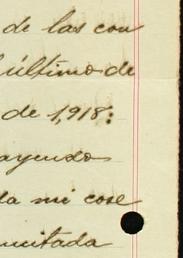 de las con
último de
de 1,918:
ayendo
la mi cose
citada